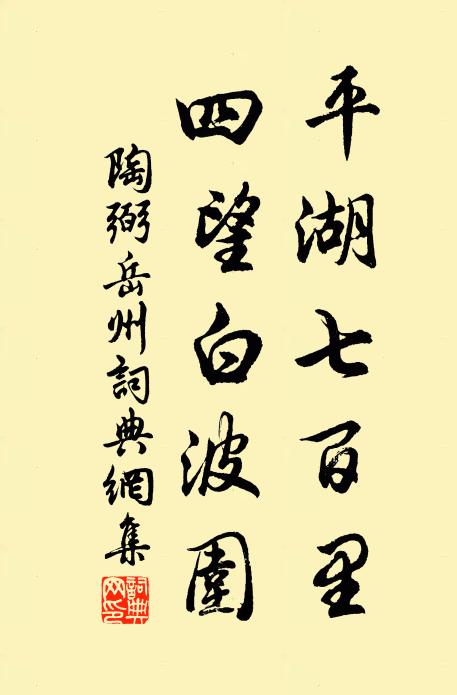 平湖七百里
四望白波圍
陶弼岳州詞典網集
詞典網印